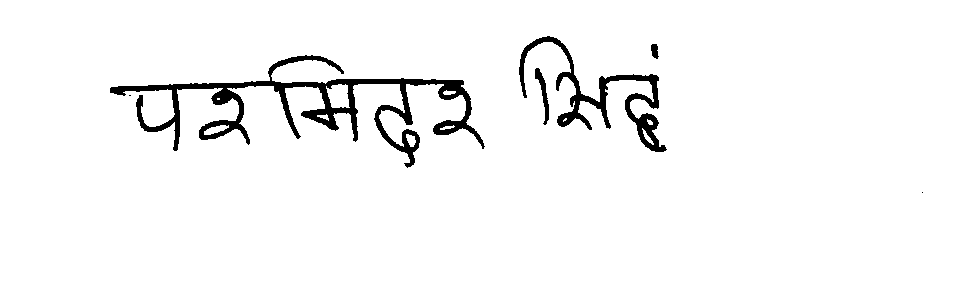 परमिदर सिहं